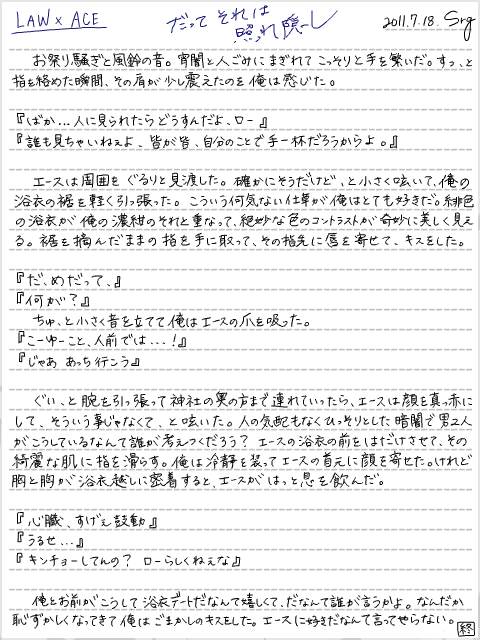 LAW × ACE
だって それは 照れ隠ーし
2011.7.18. Srg
お祭り騒ぎと風鈴の音。宵闇と人ごみにまぎれて こっそりと手を繋いだ。すっ、と
指を絡めた瞬間、その肩が少し震えたのを俺は感じた。
『ばか…人に見られたらどうすんだよ、ロー』
『誰も見ちゃいねぇよ、皆が皆、自分のことで手一杯だろうからよ。』
エースは周囲をぐるりと見渡した。確かにそうだけど、と小さく呟いて、俺の
浴衣の裾を軽く引っ張った。こういう何気ない仕草が俺はとても好きだ。緋色
の浴衣が俺の濃紺のそれと重なって、絶妙な色のコントラストが奇妙に美しく見え
る。裾を摘んだままの指を手に取って、その指先に唇を寄せて、キスをした。
『だ、めだって、』
『何が？』
ちゅ、と小さく音を立てて俺はエースの爪を吸った。
『こーゆーこと、人前では…！』
『じゃあ あっち行こう』
ぐい、と腕を引っ張って神社の奥の方まで連れていったら、エースは顔を真っ赤に
して、そういう事じゃなくて、と呟いた。人の気配もなくひっそりとした暗闇で男2人
がこうしているなんて誰が考えつくだろう？ エースの浴衣の前をはだけさせて、その
綺麗な肌に指を滑らす。俺は冷静を装ってエースの首元に顔を寄せた。けれど
胸と胸が浴衣越しに密着すると、エースがはっと息を飲んだ。
『心臓、すげぇ鼓動』
『うるせ…』
『キンチョーしてんの？ ローらしくねぇな』
俺とお前がこうして浴衣デートだなんて嬉しくて、だなんて誰が言うかよ。なんだか
恥ずかしくなってきて俺はごまかしのキスをした。エースに好きだなんて言ってやらない。終